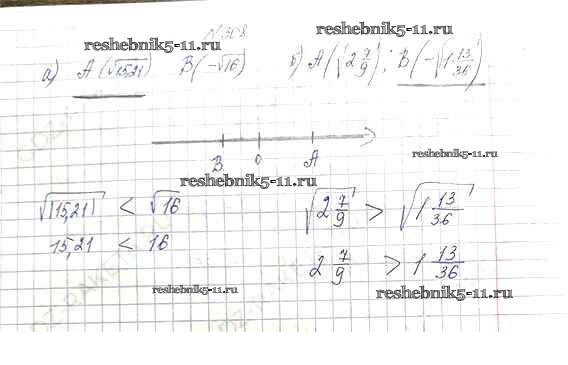 №308
reshebnik5-11.ru
reshebnik5-11.ru
а) А (√15,21) В(-√16) б) А(√2 7/9); В(-√1 13/36)
reshebnik5-11.ru
В 0 А
reshebnik5-11.ru
√(15,21) < √16 √2 7/9 > √1 13/36
15,21 < 16 2 7/9 > 1 13/36
reshebnik5-11.ru
reshebnik5-11.ru